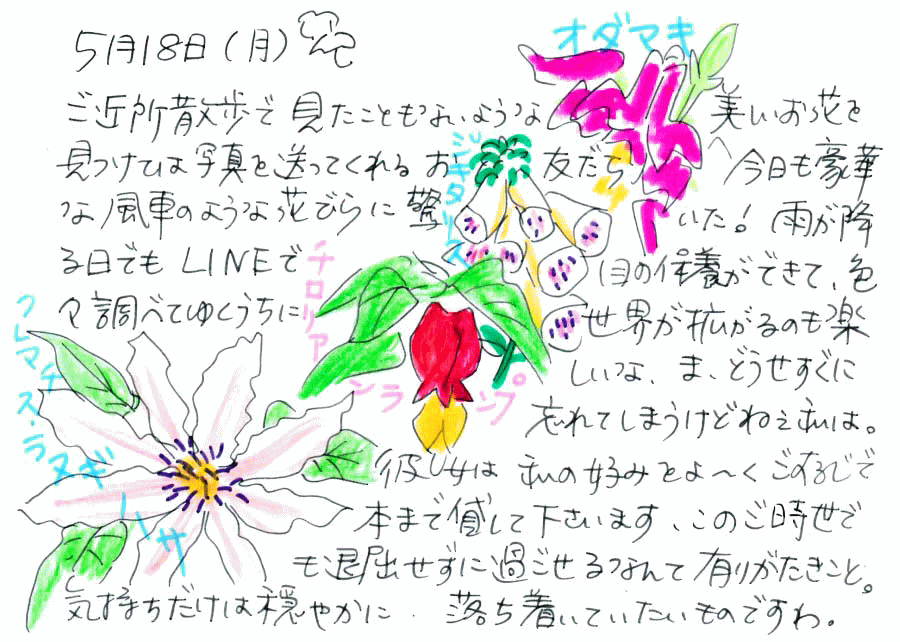 5月18日(月)
オダマキ
ご近所散歩で見たこともないような美しいお花を
見つけては写真を送ってくれるお友だち、今日も豪華
な風車のような花びらに驚いた!雨が降
る日でもLINEで目の保養ができて、色
々調べてゆくうちに世界が拡がるのも楽
しいな、ま、どうせすぐに
忘れてしまうけどねぇ私は。
彼女は私の好みをよ〜くご存じで
本まで貸して下さいます、このご時世で
も退屈せずに過ごせるなんて有りがたきこと。
気持ちだけは穏やかに、落ち着いていたいものですわ。
ジギタリス
チロリアンランプ
クレマチス・ラヌギノーサ